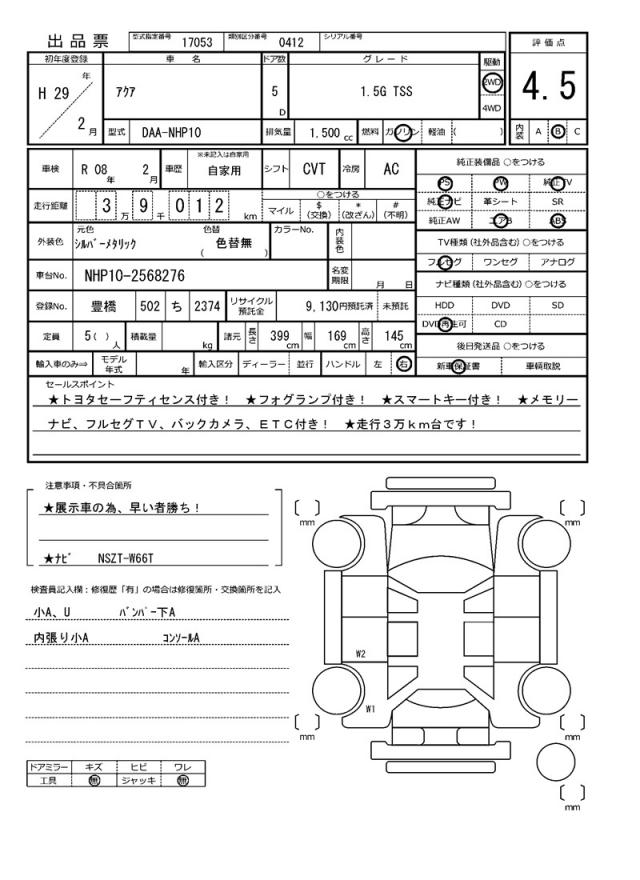 出品票 型式指定番号 17053 類別区分番号 0412 シリアル番号
評価点
4.5
内装 A B C
初年度登録 車名 ドア数 グレード 駆動
H 29 年 2 月
アクア 5 D 1.5G TSS 2WD 4WD
型式 DAA-NHP10 排気量 1.500 cc 燃料 ガソリン 軽油 ( )
車検 R 08 年 2 月 車歴 ※未記入は自家用 自家用 シフト CVT 冷房 AC
走行距離 3 万 9 千 0 1 2 km
○をつける
マイル $ (交換) * (改ざん) # (不明)
外装色 元色 シルバーメタリック 色替 ( 色替無 ) カラーNo. 内装色
車台No. NHP10-2568276 名変期限 月 日
登録No. 豊橋 502 ち 2374 リサイクル預託金 9,130円預託済 未預託
定員 5( ) 人 積載量 kg 諸元 長さ 399 cm 幅 169 cm 高さ 145 cm
輸入車のみ⇒ モデル年式 年 輸入区分 ディーラー 並行 ハンドル 左 右
純正装備品 ○をつける
PS PW 純正TV
純正ナビ 革シート SR
純正AW エアB ABS
TV種類(社外品含む)○をつける
フルセグ ワンセグ アナログ
ナビ種類(社外品含む)○をつける
HDD DVD SD
DVD再生可 CD
後日発送品 ○をつける
新車保証書 車輌取説
セールスポイント
★トヨタセーフティセンス付き! ★フォグランプ付き! ★スマートキー付き! ★メモリー
ナビ、フルセグTV、バックカメラ、ETC付き! ★走行3万km台です!
注意事項・不具合箇所
★展示車の為、早い者勝ち!
★ナビ NSZT-W66T
検査員記入欄:修復歴「有」の場合は修復箇所・交換箇所を記入
小A、U バンパー下A
内張り小A コンソールA
ドアミラー キズ ヒビ ワレ
工具 無 ジャッキ 無
mm
mm
W2
W1
mm
mm
mm